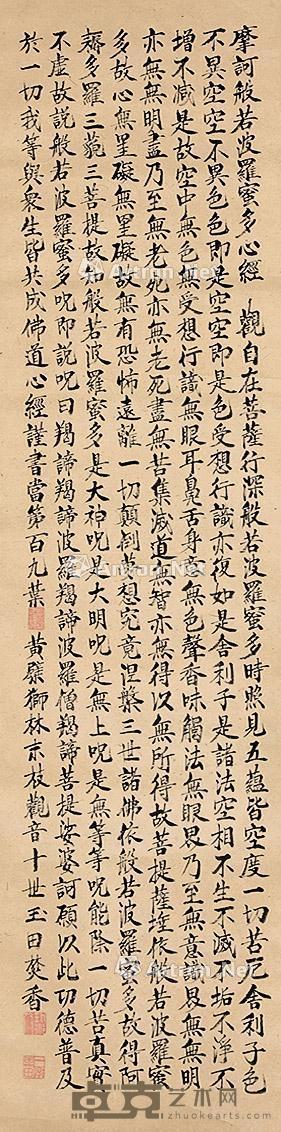 摩訶般若波羅蜜多心經 觀自在菩薩行深般若波羅蜜多時照見五蘊皆空度一切苦厄舍利子色
不異空空不異色色即是空空即是色受想行識亦復如是舍利子是諸法空相不生不滅不垢不淨不
增不減是故空中無色無受想行識無眼耳鼻舌身意無色聲香味觸法無眼界乃至無意識界無無明
亦無無明盡乃至無老死亦無老死盡無苦集滅道無智亦無得以無所得故菩提薩埵依般若波羅蜜
多故心無罣礙無罣礙故無有恐怖遠離一切顛倒夢想究竟涅槃三世諸佛依般若波羅蜜多故得阿
耨多羅三藐三菩提故知般若波羅蜜多是大神呪是大明呪是無上呪是無等等呪能除一切苦真實
不虛故說般若波羅蜜多呪即說呪曰羯諦羯諦波羅羯諦波羅僧羯諦菩提娑婆訶願以此功德普及
於一切我等與衆生皆共成佛道心經謹書當第百九葉 黃檗獅林京枝觀音十世玉田焚香
卓克艺术网
zhuokearts.com